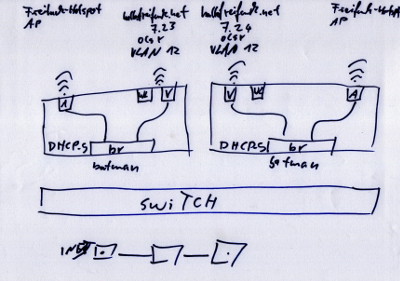 Freifunk-Hotspot
AP
halle.freifunk.net
7.23
OLSR
VLAN 12
halle.freifunk.net
7.24
OLSR
VLAN 12
Freifunk-Hotspot
AP
A
V
V
A
DHCP-S
br
batman
DHCP-S
br
batman
SWITCH